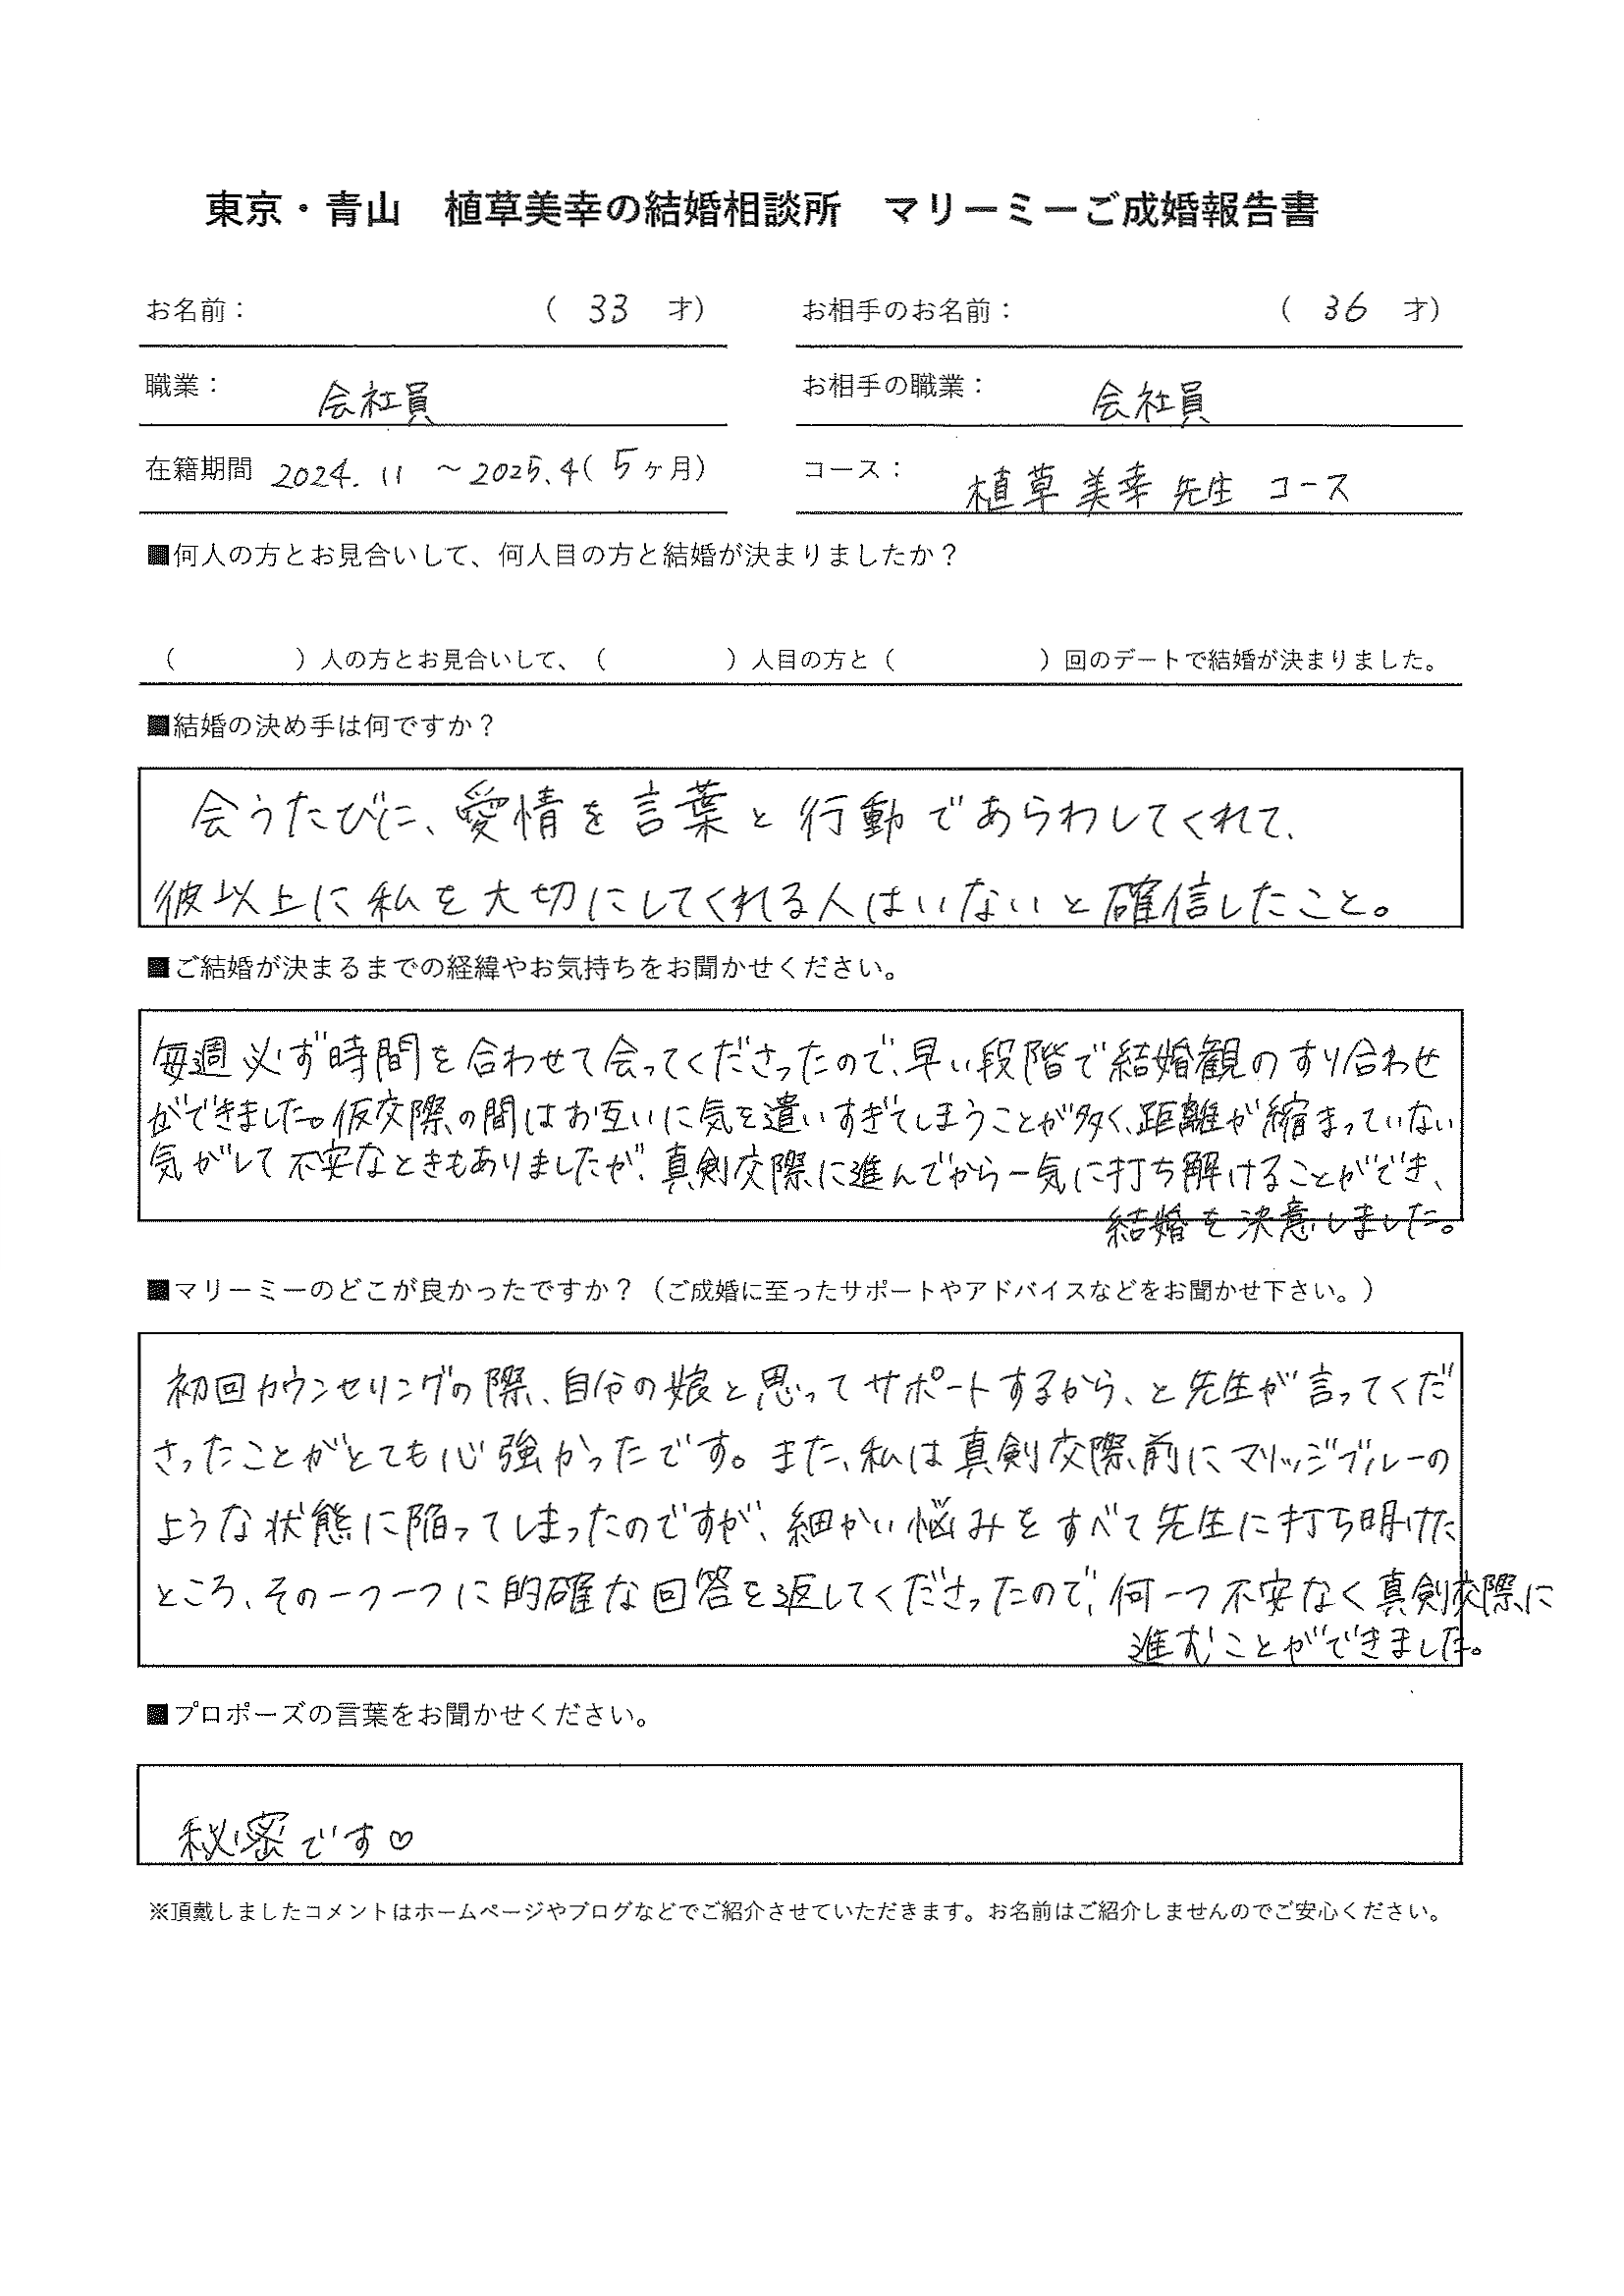 東京・青山　植草美幸の結婚相談所　マリーミーご成婚報告書
お名前：　（ 33 才）　お相手のお名前：　（ 36 才）
職業：　会社員　お相手の職業：　会社員
在籍期間 2024. 11 ～2025.4（ 5ヶ月）　コース：　植草美幸先生 コース
■何人の方とお見合いして、何人目の方と結婚が決まりましたか？
（　　　）人の方とお見合いして、（　　　）人目の方と（　　　）回のデートで結婚が決まりました。
■結婚の決め手は何ですか？
会うたびに、愛情を言葉と行動であらわしてくれて、
彼以上に私を大切にしてくれる人はいないと確信したこと。
■ご結婚が決まるまでの経緯やお気持ちをお聞かせください。
毎週必ず時間を合わせて会ってくださったので、早い段階で結婚観のすり合わせ
ができました。仮交際の間はお互いに気を遣いすぎてしまうことが多く、距離が縮まっていない
気がして不安なときもありましたが、真剣交際に進んでから一気に打ち解けることができ、
結婚を決意しました。
■マリーミーのどこが良かったですか？（ご成婚に至ったサポートやアドバイスなどをお聞かせ下さい。）
初回カウンセリングの際、自分の娘と思ってサポートするから、と先生が言ってくだ
さったことがとても心強かったです。また、私は真剣交際前にマリッジブルーの
ような状態に陥ってしまったのですが、細かい悩みをすべて先生に打ち明けた
ところ、その一つ一つに的確な回答を返してくださったので、何一つ不安なく真剣交際に
進むことができました。
■プロポーズの言葉をお聞かせください。
秘密です♡
※頂戴しましたコメントはホームページやブログなどでご紹介させていただきます。お名前はご紹介しませんのでご安心ください。